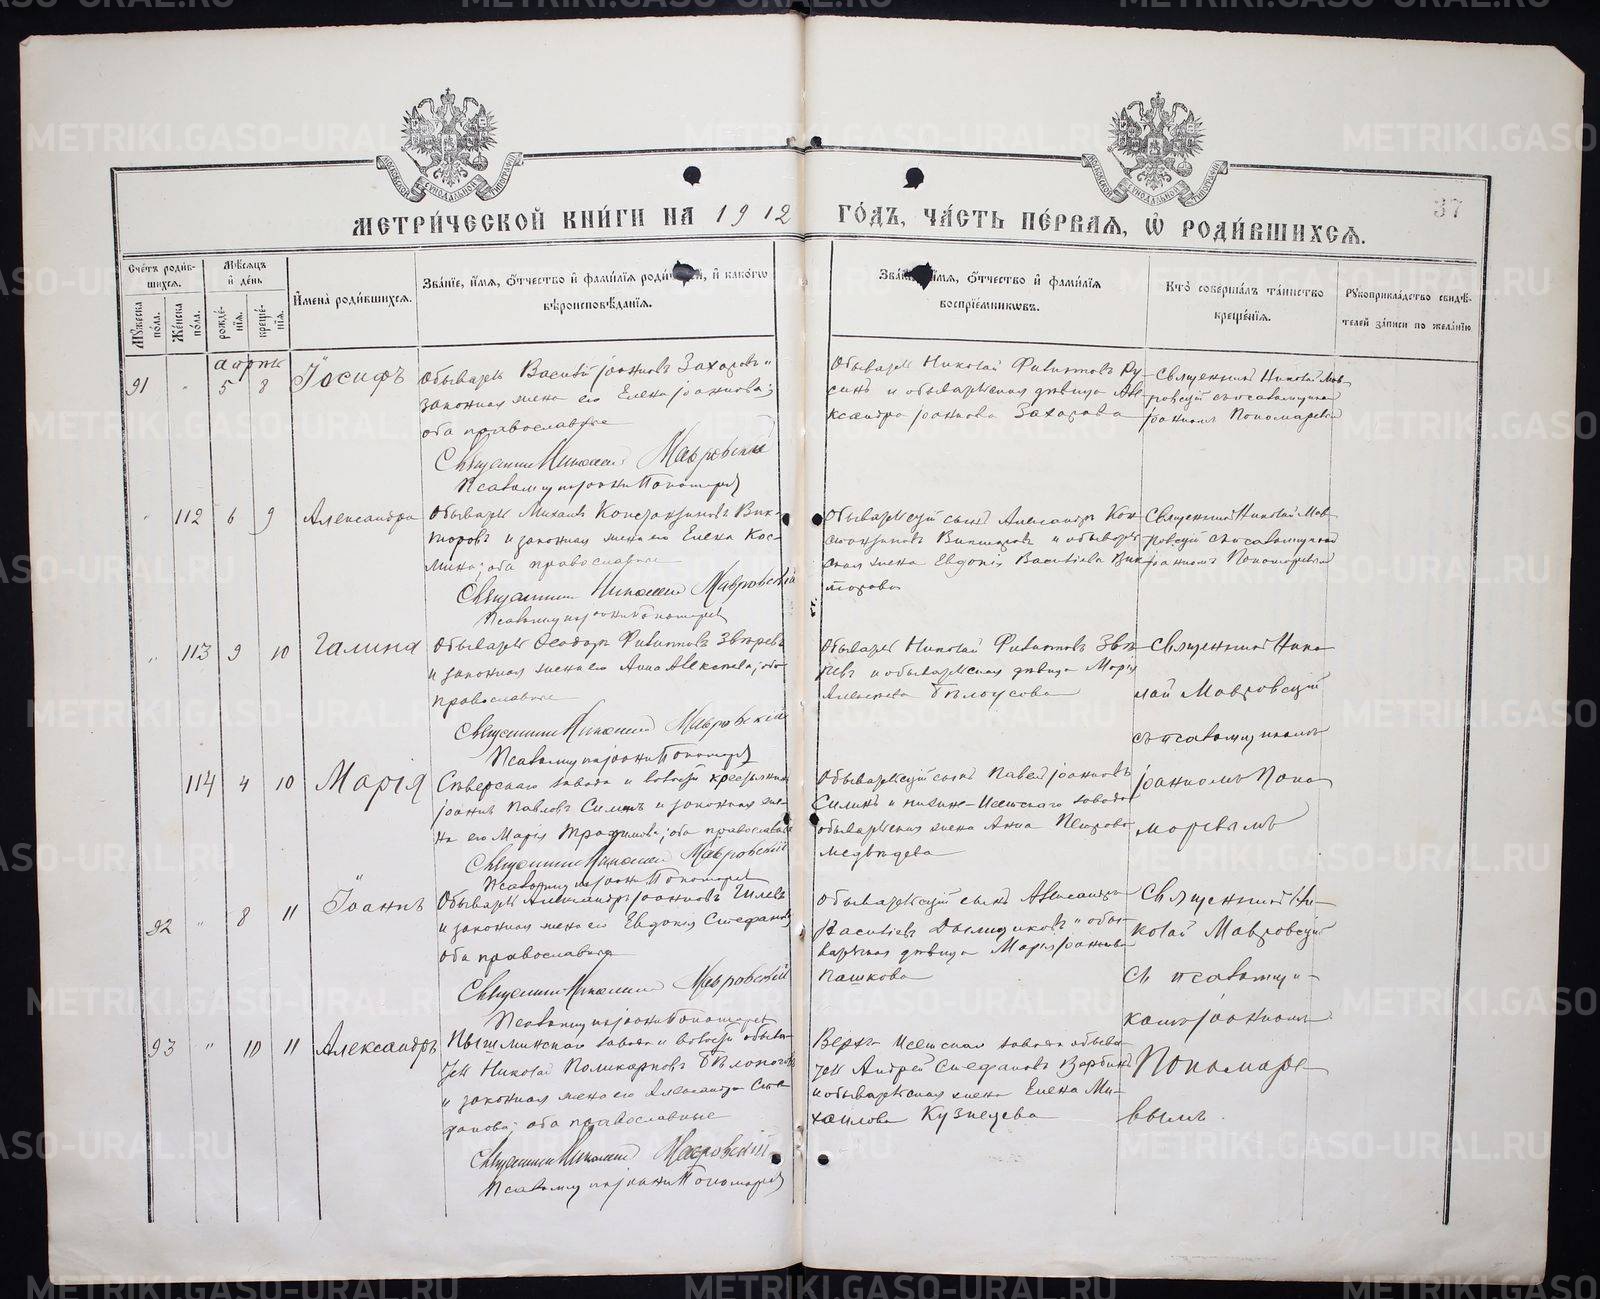 МЕТРИ́ЧЕСКОЙ КНИ́ГИ НА 1912 ГО́ДЪ, ЧА́СТЬ ПЕ́РВАЯ, Ѡ҆ РОДИ́ВШИХСЯ.
37
Сче́тъ роди́вшихся.
Му́жеска по́ла.
Же́нска по́ла.
Мѣ́сяцъ и҆ де́нь
рожде́нїя.
креще́нїя.
И҆мена̀ роди́вшихся.
Зва́нїе, и҆́мя, ѻ҆́тчество и҆ фами́лїя роди́ й, и҆ како́гѡ
вѣроисповѣ́данїя.
Зва́ и҆́мя, ѻ҆́тчество и҆ фами́лїя
воспрїе́мникѡвъ.
Кто̀ соверша́лъ та́инство
креще́нїя.
Рꙋкоприкла́дство свидѣ́-
телей за́писи по жела́нїю
марта
91 " 5 8 Іосифъ
Обыватель Василій Іоанновъ Захаровъ и
законная жена его Елена Іоаннова;
оба православные
Священникъ Николай Мавровскій
Псаломщикъ Іоаннъ Пономаревъ
Обыватель Николай Филиповъ Ру-
синъ и обывательская дѣвица Але-
ксандра Іоаннова Захарова
Священникъ Николай Мав-
ровскій съ псаломщикомъ
Іоанномъ Пономаревымъ
" 112 6 9 Александра
Обыватель Михаилъ Константиновъ Вик-
торовъ и законная жена его Елена Кос-
мина; оба православные
Священникъ Николай Мавровскій
Псаломщикъ Іоаннъ Пономаревъ
Обывательскій сынъ Александръ Кон-
стантиновъ Викторовъ и обыватель-
ская жена Евдокія Васильева Вик-
торова
Священникъ Николай Мав-
ровскій съ псаломщикомъ
Іоанномъ Пономаревымъ
" 113 9 10 Галина
Обыватель Ѳеодоръ Филиповъ Звѣревъ
и законная жена его Анна Алексѣева; оба
православные
Священникъ Николай Мавровскій
Псаломщикъ Іоаннъ Пономаревъ
Обыватель Николай Филиповъ Звѣ-
ревъ и обывательская дѣвица Марія
Алексѣева Бѣлоусова
Священникъ Нико-
лай Мавровскій
съ псаломщикомъ
Іоанномъ Поно-
маревымъ
114 4 10 Марія
Сѣверскаго завода и волости крестьянинъ
Іоаннъ Павловъ Силинъ и законная же-
на его Марія Трофимова; оба православные
Священникъ Николай Мавровскій
Псаломщикъ Іоаннъ Пономаревъ
Обывательскій сынъ Павелъ Іоанновъ
Силинъ и Нижне-Исетскаго завода
обывательская жена Анна Петрова
Медвѣдева
92 " 8 11 Іоаннъ
Обыватель Александръ Іоанновъ Гилевъ
и законная жена его Евдокія Стефанова
оба православные
Священникъ Николай Мавровскій
Псаломщикъ Іоаннъ Пономаревъ
Обывательскій сынъ Александръ
Васильевъ и обы-
вательская дѣвица Марія Іоаннова
Пашкова
Священникъ Ни-
колай Мавровскій
съ псаломщи-
комъ Іоанномъ
Пономаре-
вымъ.
93 " 10 11 Александръ
Пышминскаго завода и волости обыва-
тель Николай Поликарповъ
и законная жена его Александра Сте-
фанова; оба православные
Священникъ Николай Мавровскій
Псаломщикъ Іоаннъ Пономаревъ
Верхъ Исетскаго завода обыва-
тель Андрей Стефановъ
и обывательская жена Елена Ми-
хаилова Кузнецова
METRIKI.GASO-URAL.RU